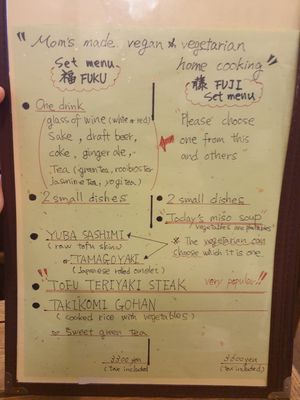 "Mom's made vegan & vegetarian
home cooking"
Set menu
福 FUKU
藤 FUJI
Set menu
One drink
glass of wine (white or red)
Sake, draft beer,
coke, ginger ale,
Tea (green tea, rooibos tea
Jasmine tea, yogi tea)
"Please choose
one from this
and others"
2 small dishes
2 small dishes
"Today's miso soup"
vegetables and potatoes
YUBA SASHIMI
(raw tofu skin)
or TAMAGOYAKI
(Japanese roled omlet)
※ The vegetarian can
choose which it is one
TOFU TERIYAKI STEAK
very popular!!
TAKIKOMI GOHAN
(cooked rice with vegetables)
Sweet green Tea
3300 yen
(tax included)
3600 yen
(tax included)